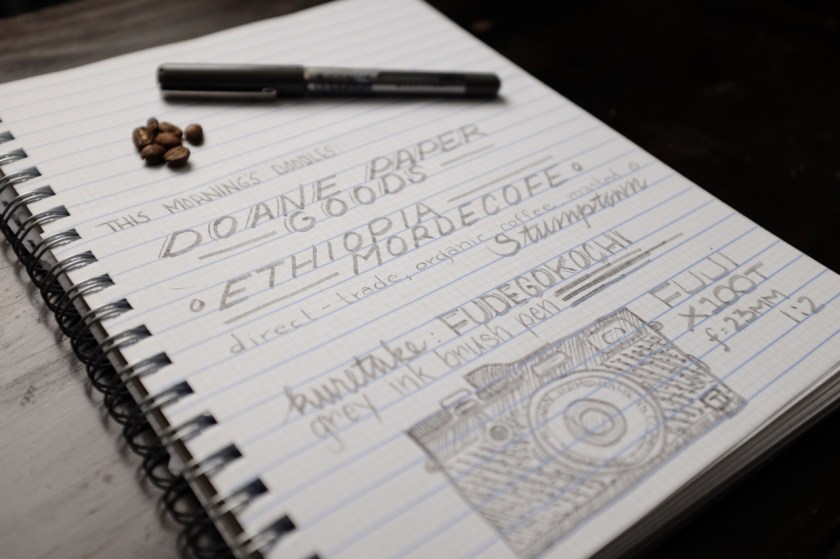 THIS MORNING'S DOODLES:
DOANE PAPER
GOODS
ETHIOPIA
MORDECOFE
direct-trade, organic coffee
Stumptown
kuretake: FUDEGOKOCHI
grey ink brush pen
FUJI
X100T
f=23MM
1:2